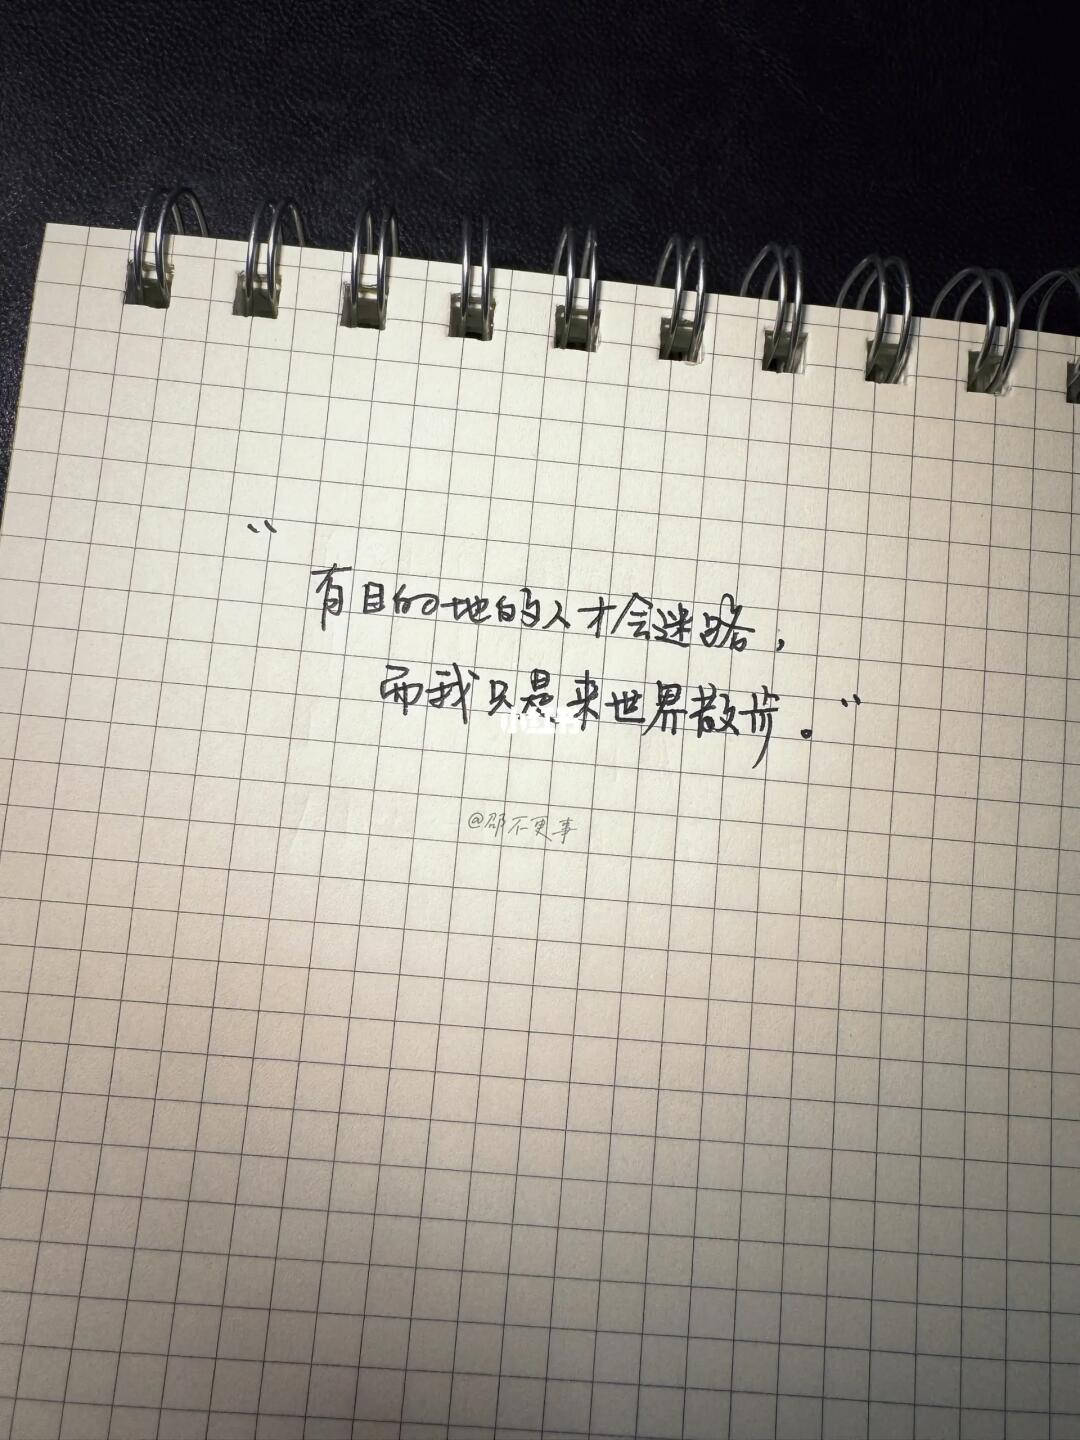 “有目的地的人才会迷路，
而我只是来世界散步。”
小红书
@邵不更事